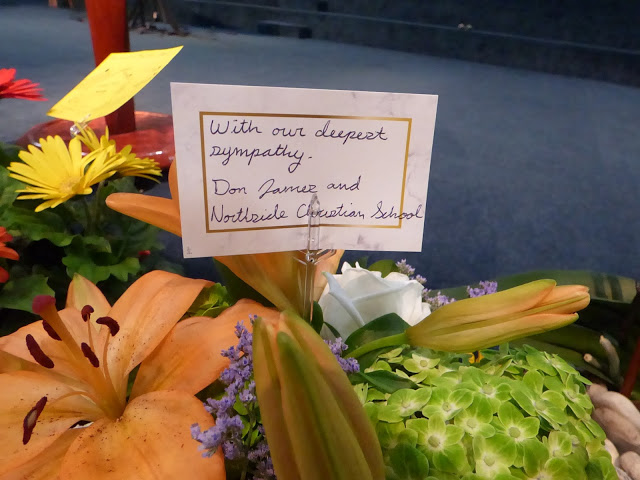 With our deepest
sympathy.
Don James and
Northside Christian School